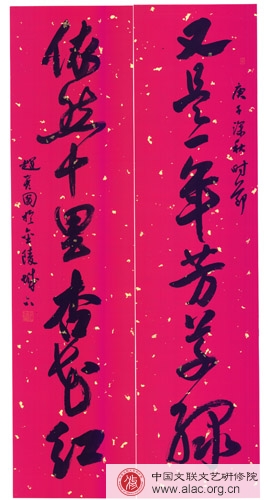 庚子深秋时节
又是一年芳草绿
依然十里杏花红
於金陵
中国文联文艺研修院
www.alac.org.cn